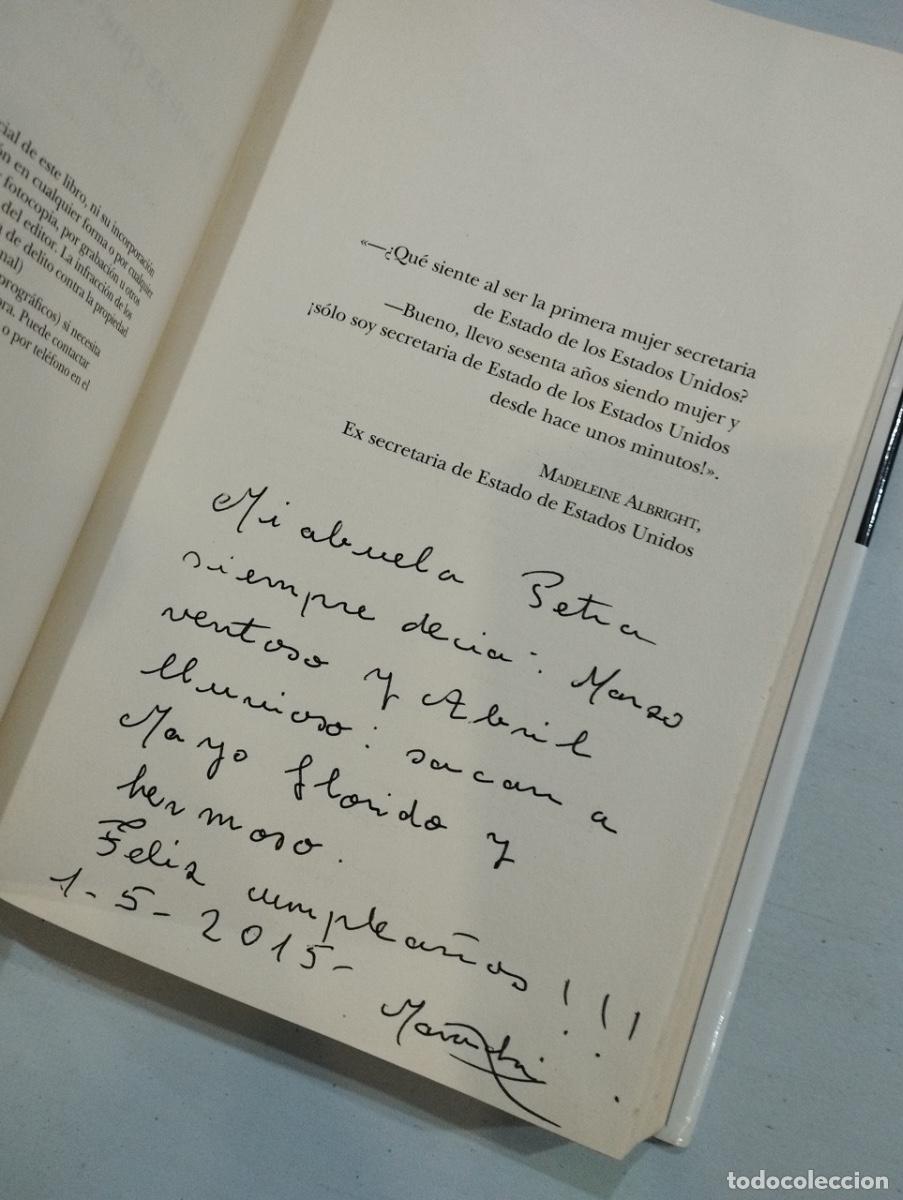 cial de este libro, ni su incorporación
ón en cualquier forma o por cualquier
fotocopia, por grabación u otros
del editor. La infracción de los
de delito contra la propiedad
nal)
prográficos) si necesita
ra. Puede contactar
o por teléfono en el
«—¿Qué siente al ser la primera mujer secretaria
de Estado de los Estados Unidos?
—Bueno, llevo sesenta años siendo mujer y
¡sólo soy secretaria de Estado de los Estados Unidos
desde hace unos minutos!».
MADELEINE ALBRIGHT,
Ex secretaria de Estado de Estados Unidos
Mi abuela Petra
siempre decia: Marzo
ventoso y Abril
lluvioso: sacan a
Mayo florido y
hermoso.
Feliz cumpleaños!!!
1-5-2015-
todocoleccion